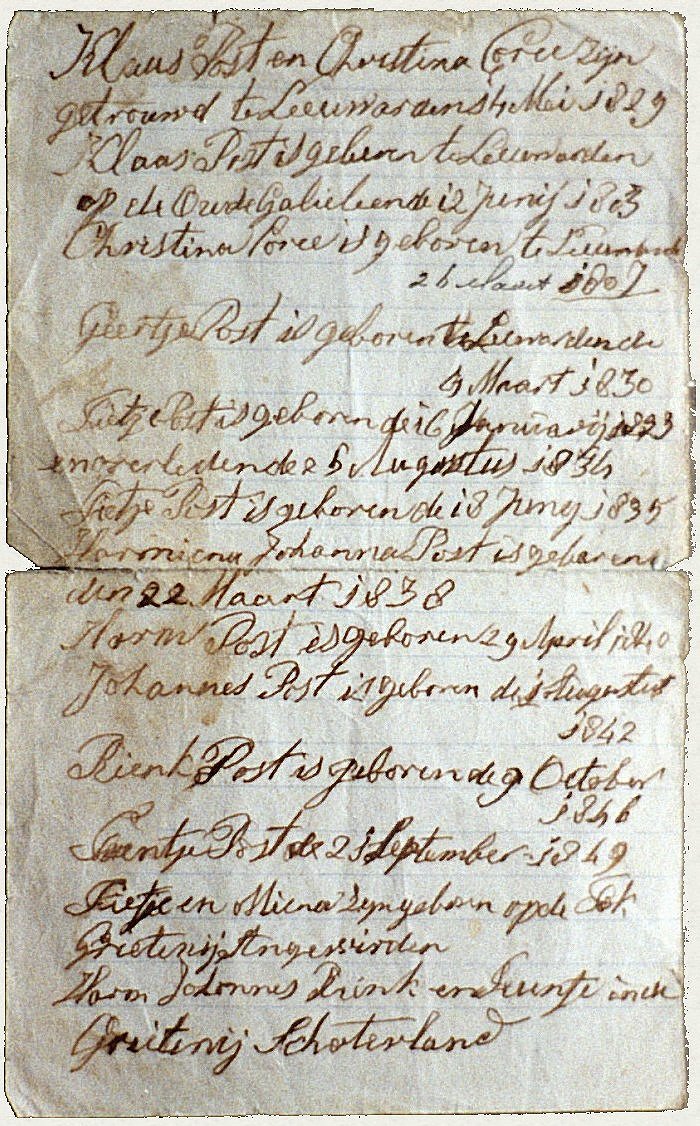 Klaas Post en Christina Coree zijn
getrouwd te Leeuwarden 14 Mei 1829
Klaas Post is geboren te Leeuwarden
op de Oude Galieleen de 12 Junij 1803
Christina Coree is geboren te Leeuward
26 Maart 1807
Geertje Post is geboren te Leewarden de
4 Maart 1830
Fietje Post is geboren de 16 Januarij 1833
en overleden de 25 Augustus 1834
Fietje Post is geboren de 18 Juny 1835
Harmiena Johanna Post is geboren
den 22 Maart 1838
Harm Post is geboren 29 April 1840
Johannes Post is geboren de 1 Augustus
1842
Rienk Post is geboren de 9 October
1846
Feentje Post de 21 September 1849
Fietje en Miena zijn geboren op de Tok
Grietenij Angewirden
Harm Johonnes Rienk en Feentje in de
Grietenij Schoterland